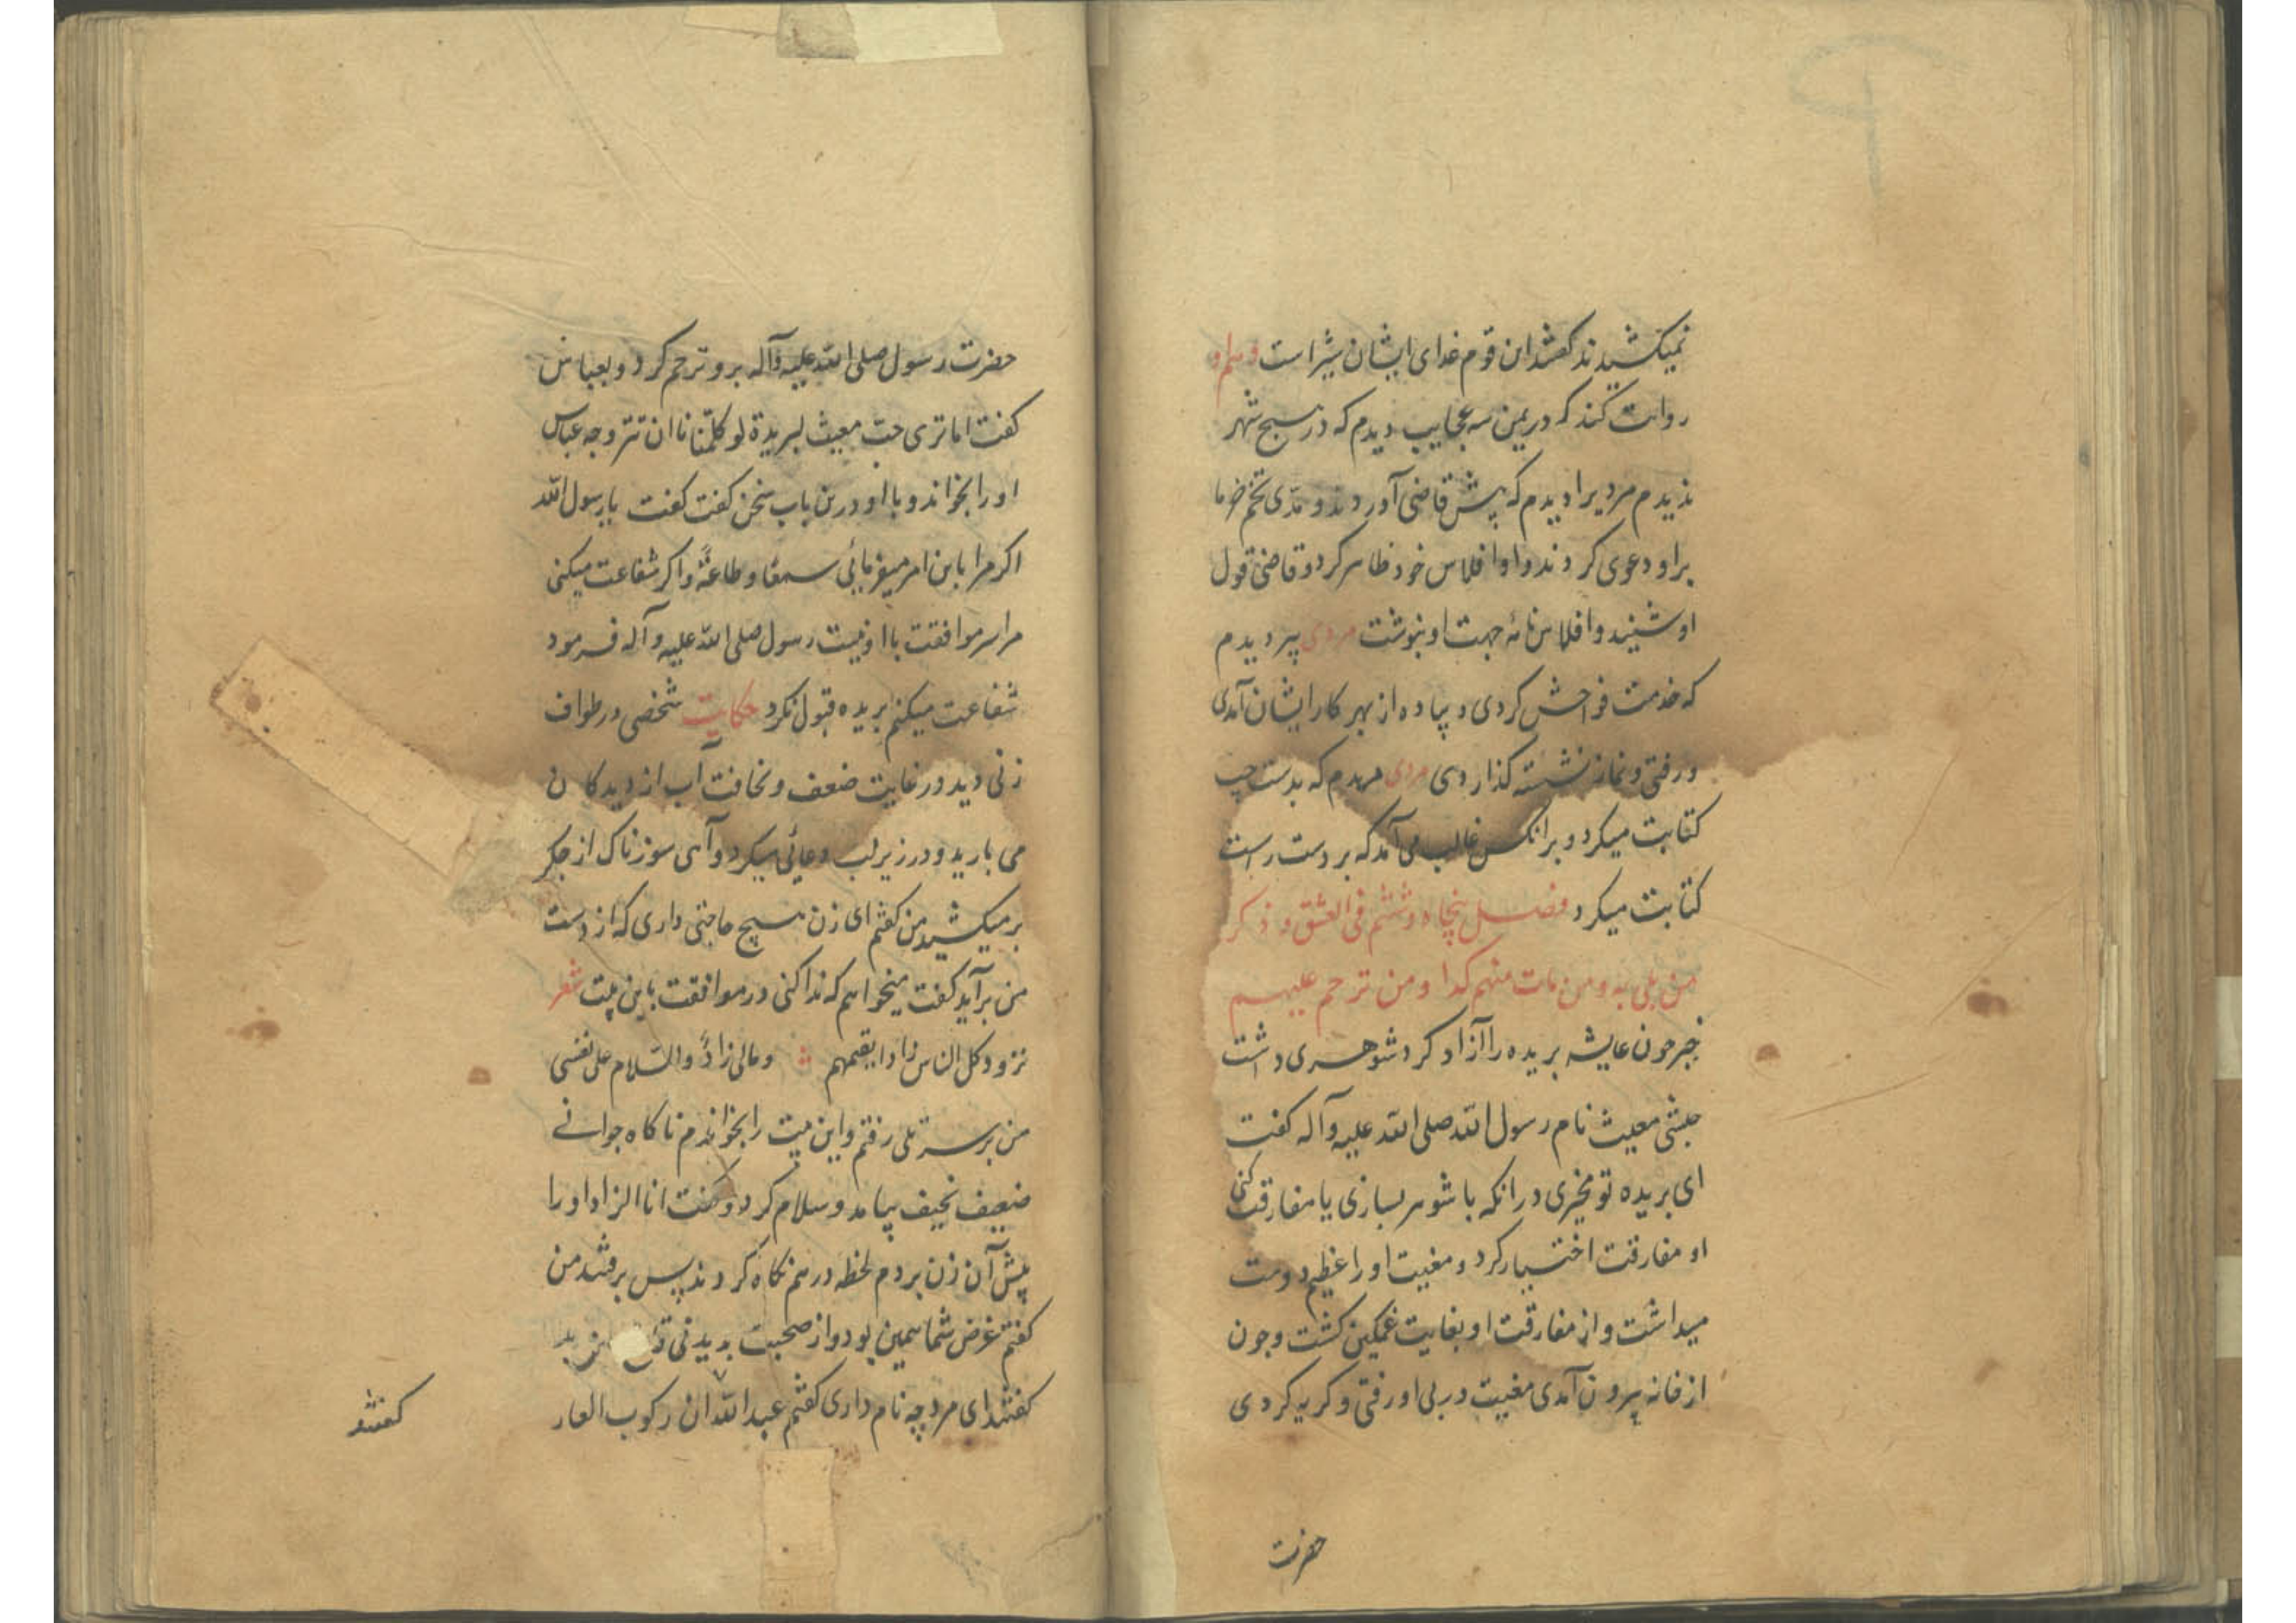 نمیکشیدند کفتند این قوم غدای ایشان شیر است و هم او
روایت کند که در یمن سه عجایب دیدم که در هیچ شهر
ندیدم مردیرا دیدم که پیش قاضی آوردند و مدی تخم خرما
براو دعوی کردند و او افلاس خود ظاهر کرد و قاضی قول
او شنید و افلاس نامهٔ جهت او بنوشت مردی پیر دیدم
که خدمت فواحش کردی و پیاده از بهر کار ایشان آمدی
و رفتی و نماز نشسته کذاردی مردی دیدم که بدست چپ
کتابت میکرد و برانکس غالب می آمد که بر دست راست
کتابت میکرد فصل پنجاه و ششم فی العشق و ذکر
من بلی به و من مات منهم کمدا و من ترحم علیهم
خبر چون عایشه بریده را آزاد کرد شوهری داشت
حبشی مغیث نام رسول الله صلی الله علیه وآله کفت
ای بریده تو مخیری درانکه با شوهر بسازی یا مفارقت کنی
او مفارقت اختیار کرد و مغیث او را عظیم دوست
میداشت و از مفارقت او بغایت غمکین کشت و چون
از خانه بیرون آمدی مغیث در پی او رفتی و کریه کردی
حضرت
حضرت رسول صلی الله علیه وآله برو ترحم کرد و بعباس
کفت اما تری حب مغیث لبریدة لو کلمتنا نا ان تتزوجه عباس
او را بخواند و با او درین باب سخن کفت کفت یا رسول الله
اکر مرا باین امر میفرمائی سمعا و طاعةً و اکر شفاعت میکنی
مرا سر موافقت با او نیست رسول صلی الله علیه وآله فرمود
شفاعت میکنم بریده قبول نکرد حکایت شخصی در طواف
زنی دید در غایت ضعف و نحافت آب از دیدکان
می بارید و در زیر لب دعائی میکرد و آهی سوزناک از جکر
بر میکشید من کفتم ای زن هیچ حاجتی داری که از دست
من برآید کفت میخواهم که ندا کنی در موافقت باین بیت شعر
تزود کل الناس زادا یقیمهم ومالی زادٌ والسلام علی نفسی
من برسر تلی رفتم و این بیت را بخواندم ناکاه جوانی
ضعیف نحیف بیامد و سلام کرد و کفت انا الزاد او را
پیش آن زن بردم لحظه در هم نکاه کردند پس برفتند من
کفتم غرض شما همین بود و از صحبت بدیدنی
کفتند ای مرد چه نام داری کفتم عبدالله ان رکوب العار
کفتند